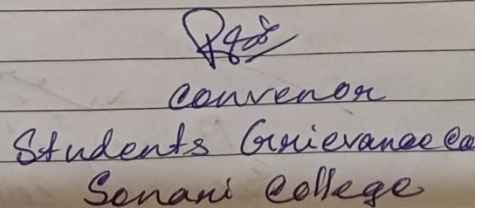 Convenor
Students Grievance Ce
Sonari College